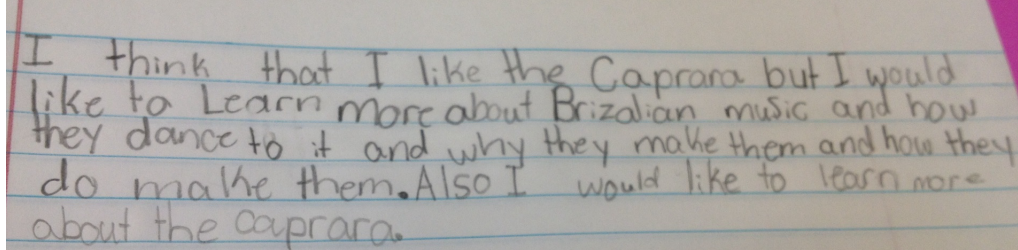 I think that I like the Caprara but I would
like to Learn more about Brizalian music and how
they dance to it and why they make them and how they
do make them. Also I would like to learn more
about the caprara.